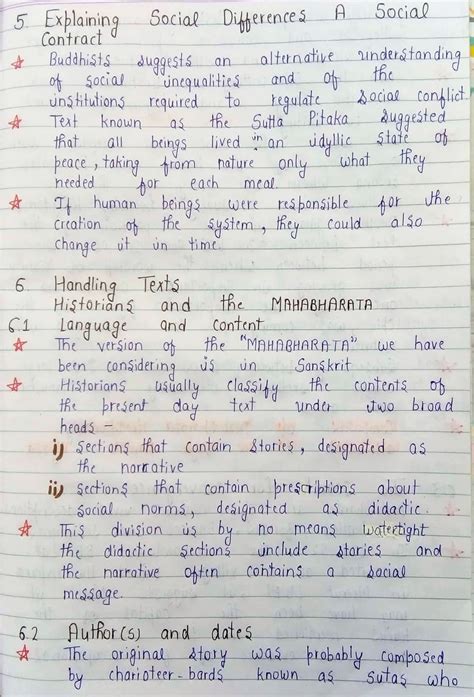 5. Explaining Social Differences A Social
Contract
Buddhists suggests an alternative understanding
of social inequalities and of the
institutions required to regulate social conflict.
Text known as the Sutta Pitaka suggested
that all beings lived in an idyllic state of
peace, taking from nature only what they
needed for each meal.
If human beings were responsible for the
creation of the system, they could also
change it in time.
6. Handling Texts
Historians and the MAHABHARATA
6.1 Language and content
The version of the "MAHABHARATA" we have
been considering is in Sanskrit
Historians usually classify the contents of
the present day text under two broad
heads -
i) sections that contain stories, designated as
the narrative
ii) sections that contain prescriptions about
social norms, designated as didactic.
This division is by no means watertight
the didactic sections include stories and
the narrative often contains a social
message.
6.2 Author(s) and dates
The original story was probably composed
by charioteer-bards known as sutas who